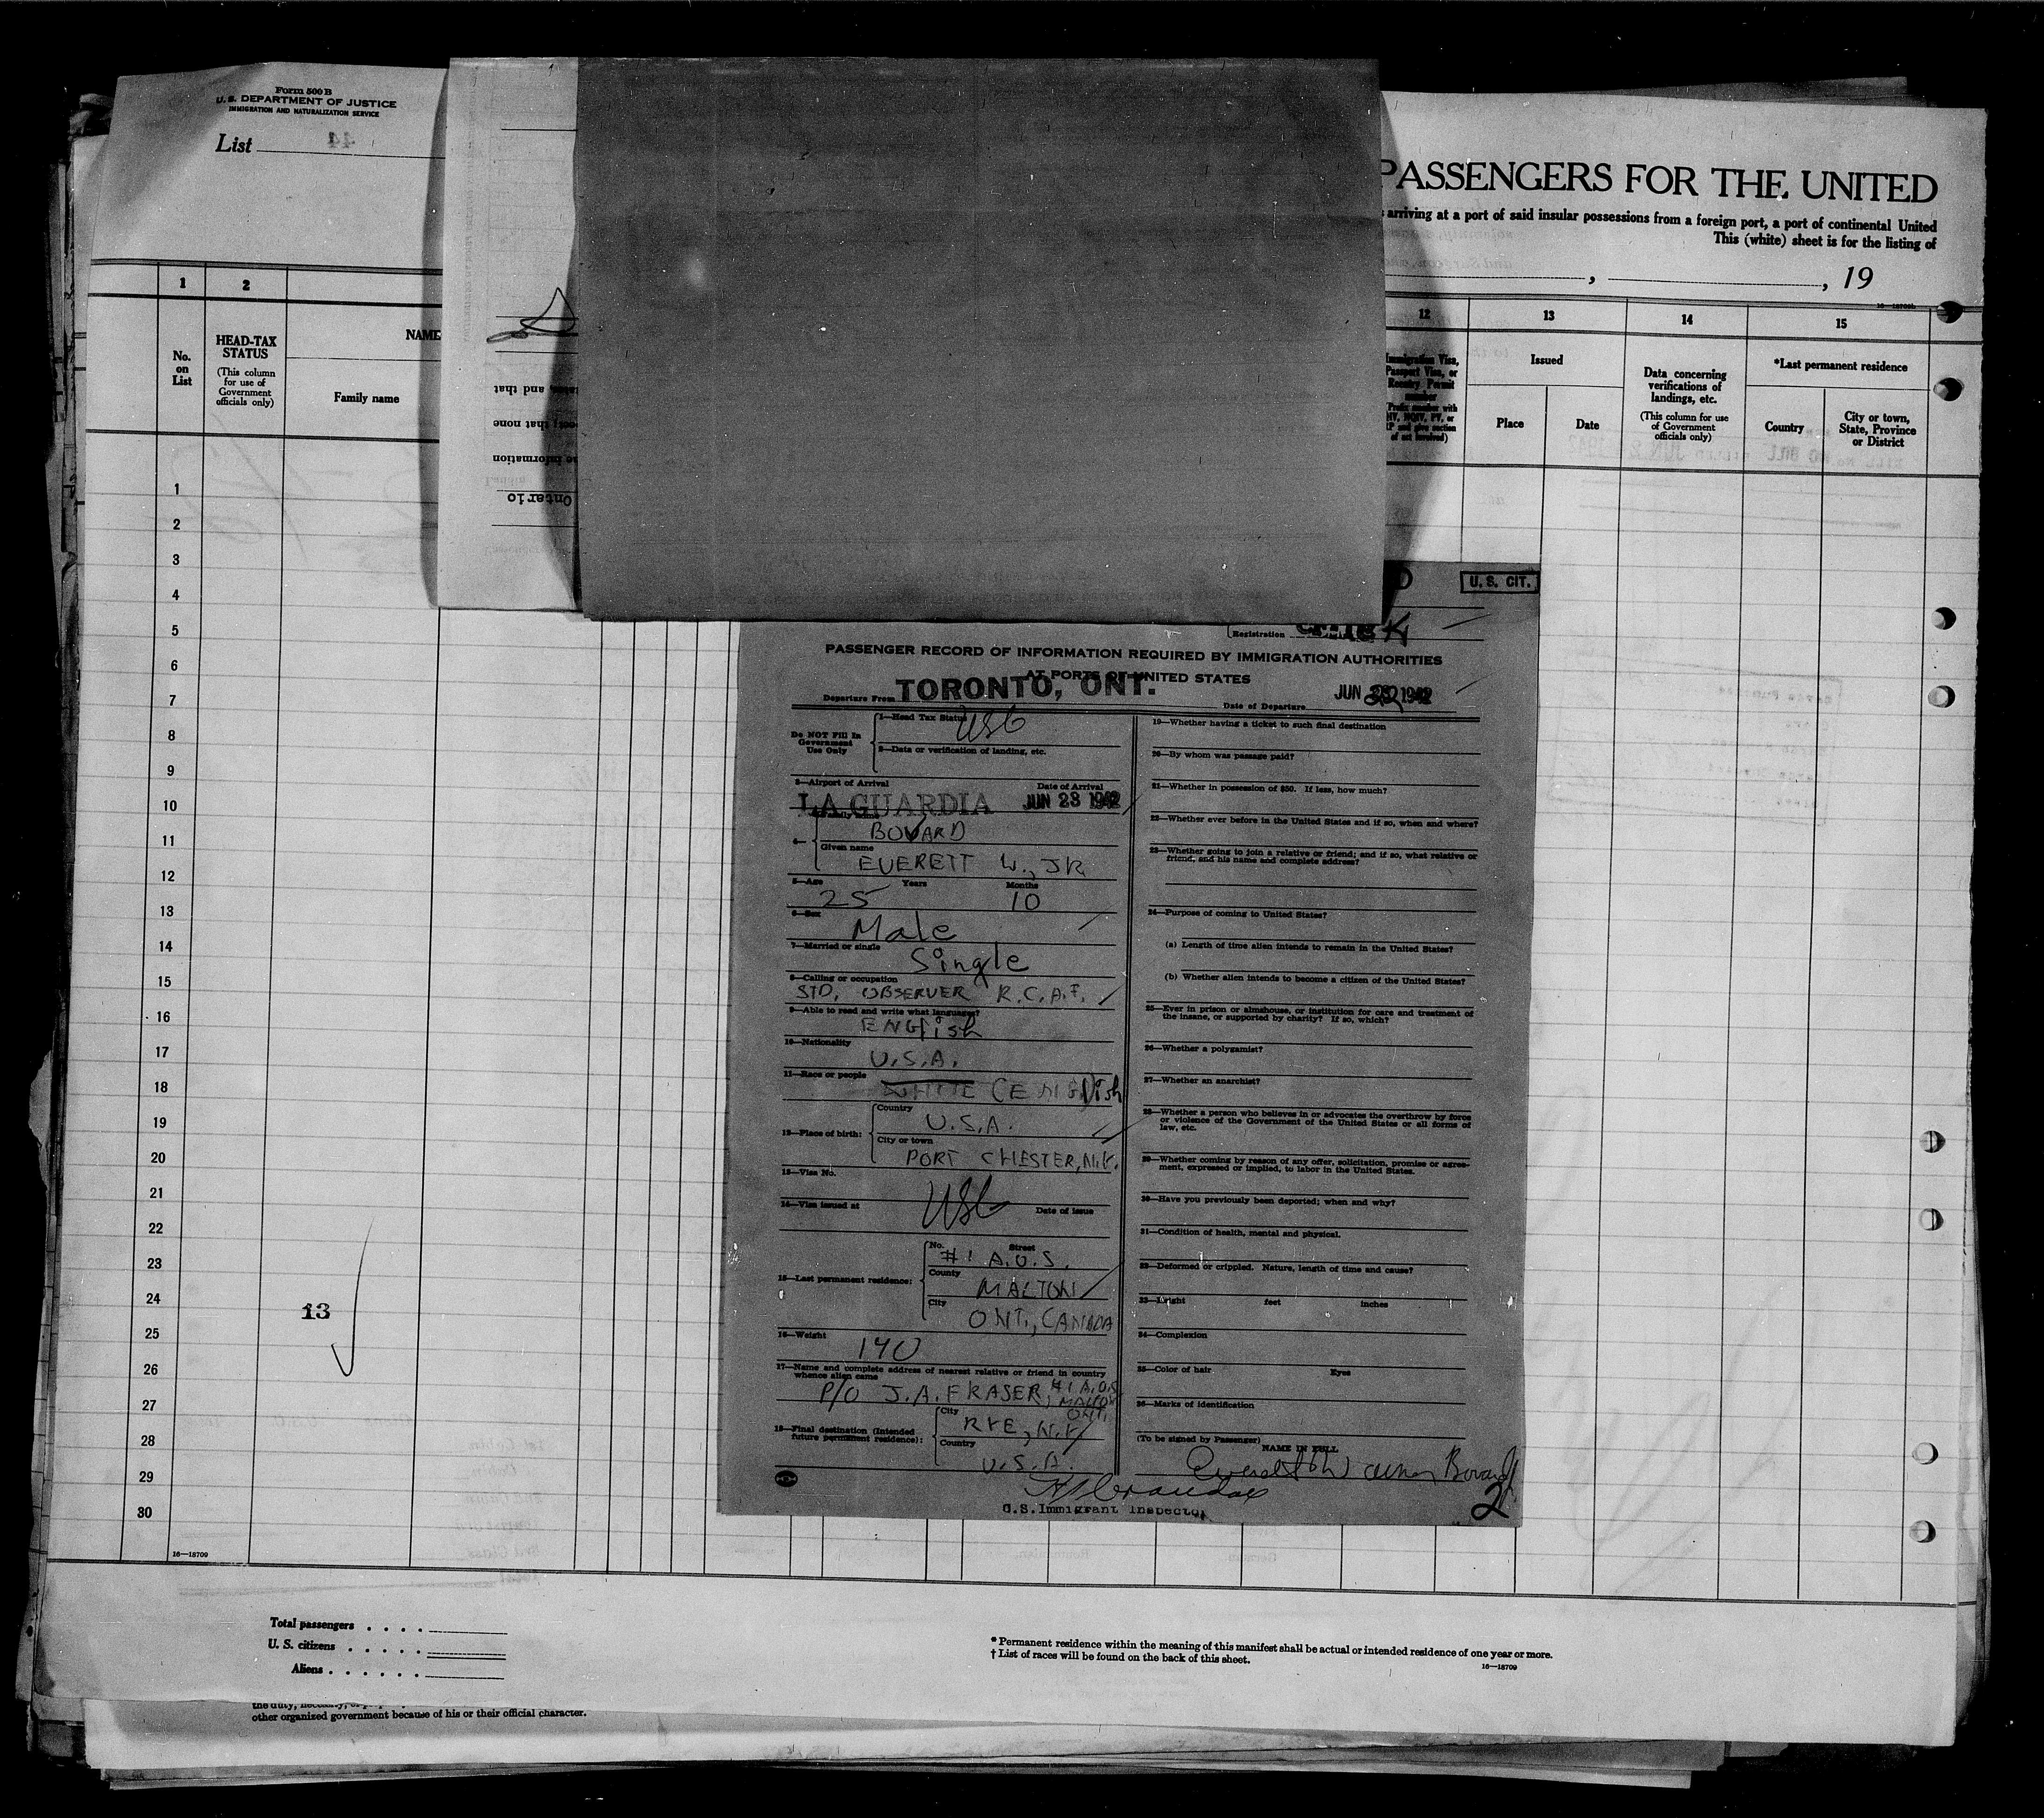 Form 500 B
U. S. DEPARTMENT OF JUSTICE
IMMIGRATION AND NATURALIZATION SERVICE
List 44
PASSENGERS FOR THE UNITED
arriving at a port of said insular possessions from a foreign port, a port of continental United
This (white) sheet is for the listing of
, , 19
1 2 12 13 14 15
No. on List
HEAD-TAX STATUS
(This column for use of Government officials only)
NAME
Family name
Immigration Visa, Passport Visa, or Reentry Permit number
Issued
Place
Date
Data concerning verifications of landings, etc.
(This column for use of Government officials only)
*Last permanent residence
Country
City or town, State, Province or District
and that
that none
information
Ontario
1
2
3
4
5
6
7
8
9
10
11
12
13
14
15
16
17
18
19
20
21
22
23
24
25
26
27
28
29
30
13
16—18709
U. S. CIT.
Registration
PASSENGER RECORD OF INFORMATION REQUIRED BY IMMIGRATION AUTHORITIES
AT PORTS OF UNITED STATES
Departure From TORONTO, ONT.
Date of Departure JUN 1942
Do NOT Fill In Government Use Only
1—Head Tax Status USC
2—Data or verification of landing, etc.
3—Airport of Arrival Date of Arrival
LA GUARDIA JUN 23 1942
4— Family name
BOVARD
Given name
EVERETT W., JR
5—Age Years Months
25 10
6—Sex
Male
7—Married or single
Single
8—Calling or occupation
STD. OBSERVER R.C.A.F.
9—Able to read and write what languages?
ENGlish
10—Nationality
U.S.A.
11—Race or people
WHITE (ENGlish
12—Place of birth:
Country
U.S.A.
City or town
PORT CHESTER, N.Y.
13—Visa No.
14—Visa issued at USC Date of issue
15—Last permanent residence:
No. Street
#1 A.O.S.
County
MALTON
City
ONT., CANADA
16—Weight
140
17—Name and complete address of nearest relative or friend in country
whence alien came
P/O J.A. FRASER, #1 A.O.S., MALTON ONT.
18—Final destination (Intended future permanent residence):
City
RYE, N.Y
Country
U.S.A.
19—Whether having a ticket to such final destination
20—By whom was passage paid?
21—Whether in possession of $50. If less, how much?
22—Whether ever before in the United States and if so, when and where?
23—Whether going to join a relative or friend; and if so, what relative or
friend, and his name and complete address?
24—Purpose of coming to United States?
(a) Length of time alien intends to remain in the United States?
(b) Whether alien intends to become a citizen of the United States?
25—Ever in prison or almshouse, or institution for care and treatment of
the insane, or supported by charity? If so, which?
26—Whether a polygamist?
27—Whether an anarchist?
28—Whether a person who believes in or advocates the overthrow by force
or violence of the Government of the United States or all forms of
law, etc.
29—Whether coming by reason of any offer, solicitation, promise or agree-
ment, expressed or implied, to labor in the United States.
30—Have you previously been deported; when and why?
31—Condition of health, mental and physical.
32—Deformed or crippled. Nature, length of time and cause?
33—Height feet inches
34—Complexion
35—Color of hair Eyes
36—Marks of identification
(To be signed by Passenger)
NAME IN FULL
Bovard
2
U.S. Immigrant Inspector
Total passengers . . . .
U. S. citizens . . . . .
Aliens . . . . . .
* Permanent residence within the meaning of this manifest shall be actual or intended residence of one year or more.
† List of races will be found on the back of this sheet.
16—18709
other organized government because of his or their official character.